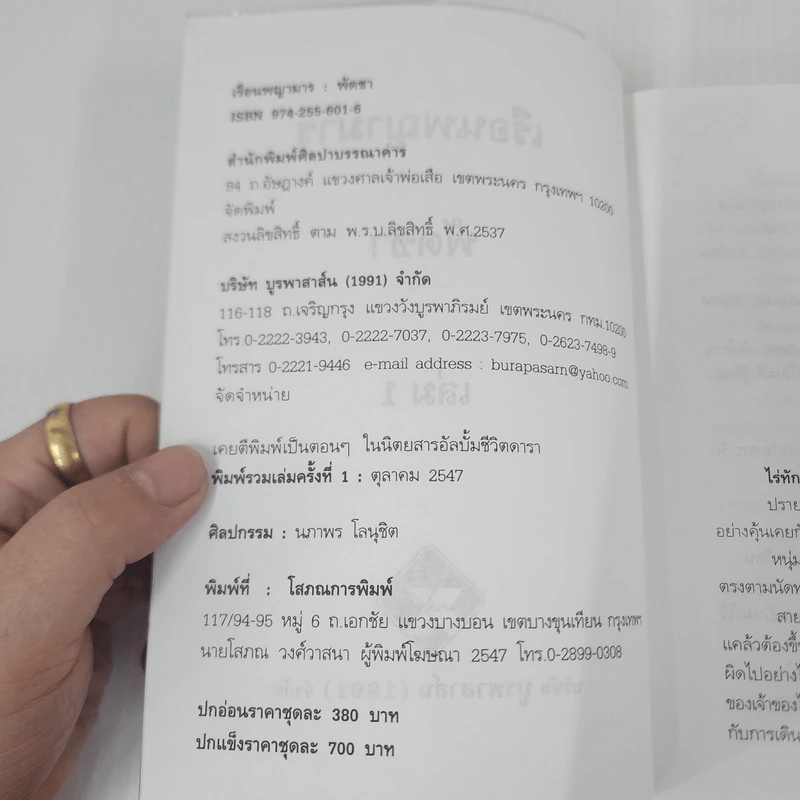 เรือนพญามาร : พัดชา
ISBN 974-255-601-6
สำนักพิมพ์ศิลปาบรรณาคาร
84 ถ.อัษฎางค์ แขวงศาลเจ้าพ่อเสือ เขตพระนคร กรุงเทพฯ 10200
จัดพิมพ์
สงวนลิขสิทธิ์ ตาม พ.ร.บ.ลิขสิทธิ์ พ.ศ.2537
บริษัท บูรพาสาส์น (1991) จำกัด
116-118 ถ.เจริญกรุง แขวงวังบูรพาภิรมย์ เขตพระนคร กทม.10200
โทร.0-2222-3943, 0-2222-7037, 0-2223-7975, 0-2623-7498-9
โทรสาร 0-2221-9446 e-mail address : burapasarn@yahoo.com
จัดจำหน่าย
เคยตีพิมพ์เป็นตอนๆ ในนิตยสารอัลบั้มชีวิตดารา
พิมพ์รวมเล่มครั้งที่ 1 : ตุลาคม 2547
ศิลปกรรม : นภาพร โลนุชิต
พิมพ์ที่ : โสภณการพิมพ์
117/94-95 หมู่ 6 ถ.เอกชัย แขวงบางบอน เขตบางขุนเทียน กรุงเทพฯ
นายโสภณ วงศ์วาสนา ผู้พิมพ์โฆษณา 2547 โทร.0-2899-0308
ปกอ่อนราคาชุดละ 380 บาท
ปกแข็งราคาชุดละ 700 บาท
ไร่ทัก
ปราย
อย่างคุ้นเคยกั
หนุ่ม
ตรงตามนัดท
สาย
แคล้วต้องขึ้
ผิดไปอย่างไ
ของเจ้าของไ
กับการเดิน